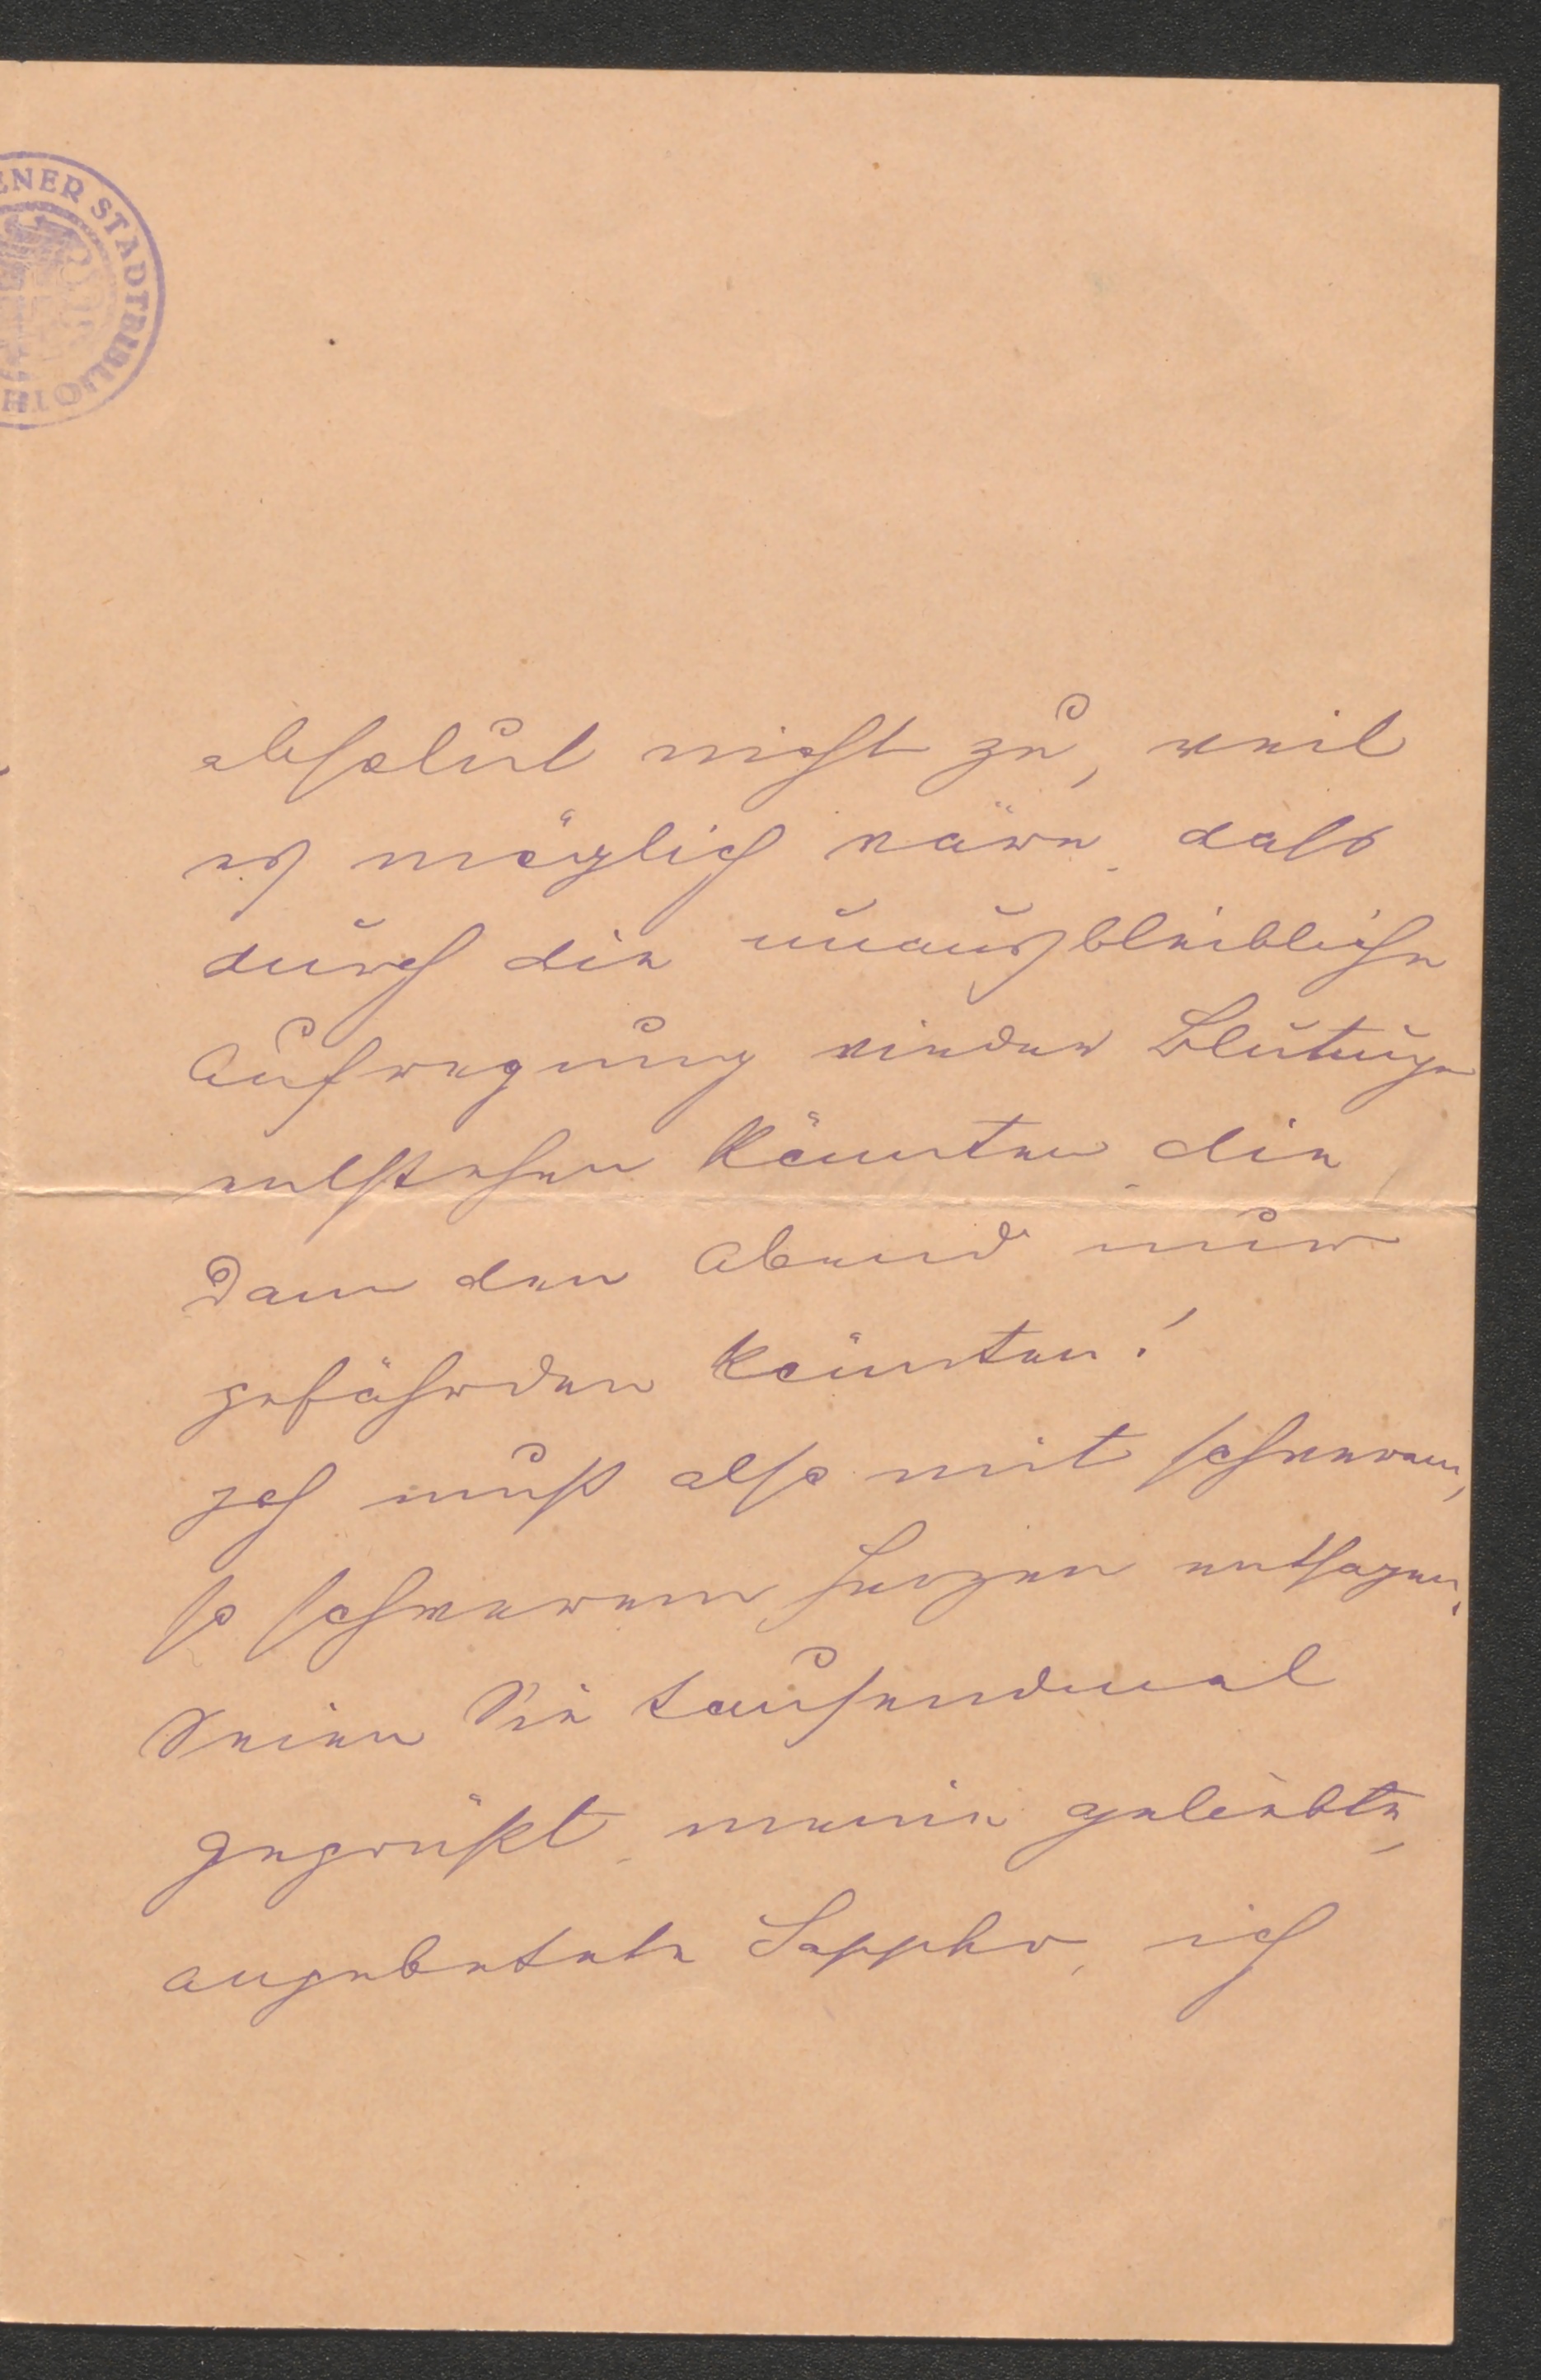 ENER STADTBIBLIOTH
absolut nicht zu, weil
es möglich wäre, dass
durch die unausbleibliche
Aufregung wieder Blutunge
entstehen könnten, die
dann den Abend nur
gefährden könnten!
Ich muß also mit schwerem,
so schwerem Herzen entsagen.
Seien Sie tausendmal
gegrüßt, meine geliebte,
angebetete Sappho, ich